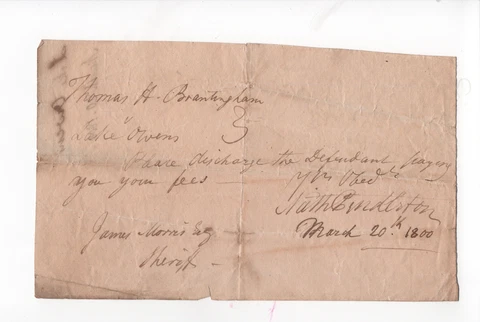 Thomas H. Brantingham
Jake Owens
Please discharge the Defendant paying
you your fees — Yrs Obedt
Nath Pendleton
March 20th 1800
James Morris Esq
Sheriff —